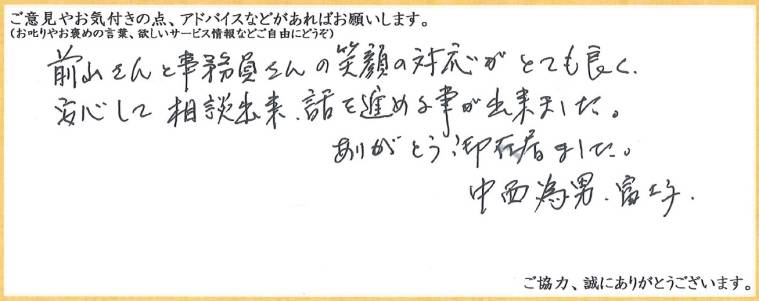 ご意見やお気付きの点、アドバイスなどがあればお願いします。
(お叱りやお褒めの言葉、欲しいサービス情報などご自由にどうぞ)
前山さんと事務員さんの笑顔の対応がとても良く、
安心して相談出来、話を進める事が出来ました。
ありがとう御在居ました。
中西為男、富士子、
ご協力、誠にありがとうございます。